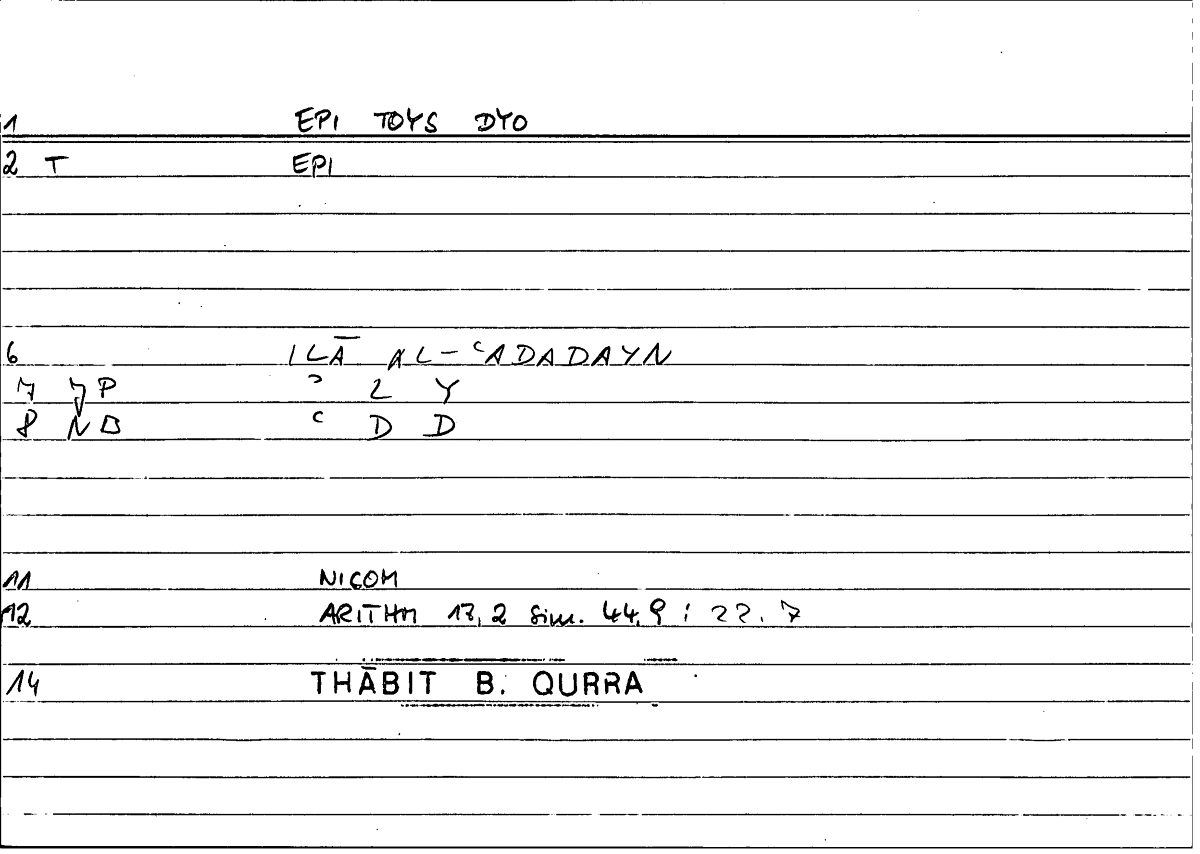 1 EPI TOYS DYO
2 T EPI
6 ILĀ AL-ʿADADAYN
7 P ʾ L Y
8 NB ʿ D D
11 NICOM
12 ARITHM 13, 2 Sim. 44, 9 : 22. 7
14 THĀBIT B. QURRA